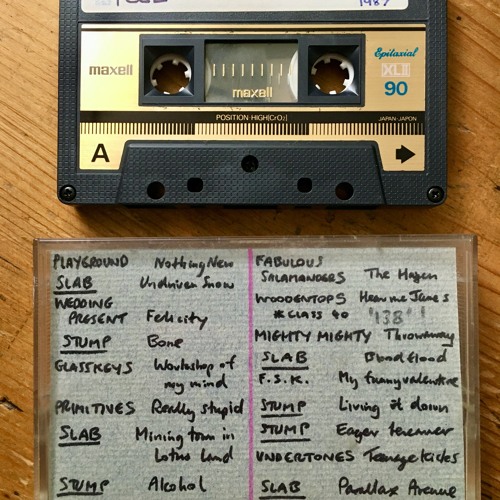 1987
maxell
maxell
Epitaxial
XLII
90
POSITION·HIGH(CrO₂)
JAPAN·JAPON
A
PLAYGROUND Nothing New
SLAB Undriven Snow
WEDDING
PRESENT Felicity
STUMP Bone
GLASS KEYS Workshop of
my mind
PRIMITIVES Really stupid
SLAB Mining town in
Lotus Land
STUMP Alcohol
FABULOUS
SALAMANDERS The
WOODENTOPS Hear me James
*CLASS 40 "138"!
MIGHTY MIGHTY Throwaway
SLAB Blood Flood
F.S.K. My funny valentine
STUMP Living it down
STUMP Eager
UNDERTONES Teenage kicks
SLAB Parallax Avenue